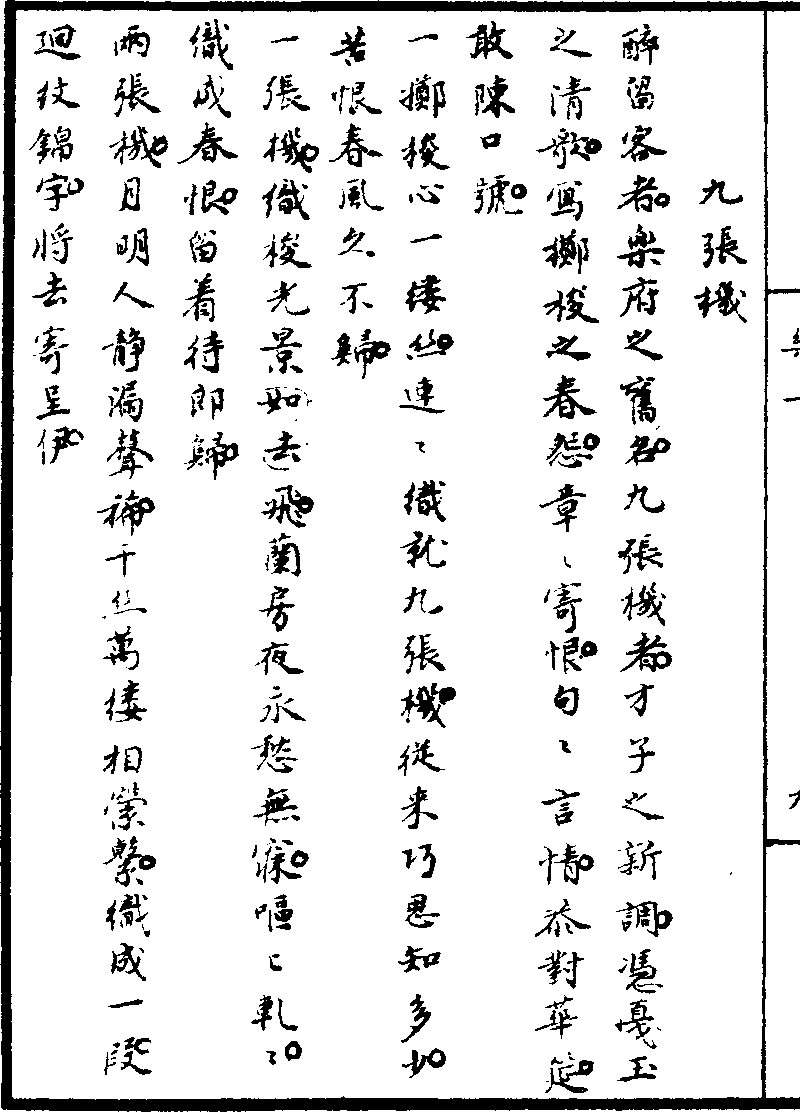 九張機
醉留客者樂府之舊名九張機者才子之新調憑戛玉
之清歌寫擲梭之春怨章〻寄恨句〻言情恭對華筵
敢陳口號
一擲梭心一縷絲連〻織就九張機從来巧思知多少
苦恨春風久不歸
一張機織梭光景如去飛蘭房夜永愁無寐嘔〻軋〻
織成春恨留着待郎歸
兩張機月明人静漏聲稀千丝萬縷相縈繫織成一段
廻纹錦字将去寄呈伊